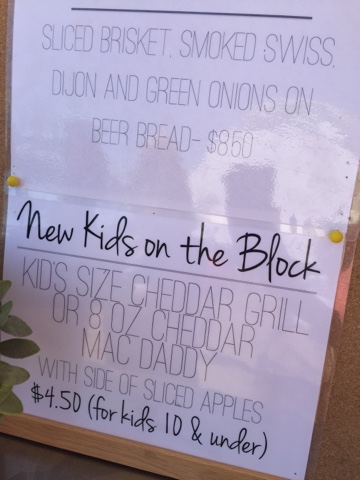 SLICED BRISKET, SMOKED SWISS,
DIJON AND GREEN ONIONS ON
BEER BREAD- $8.50
New Kids on the Block
KID'S SIZE CHEDDAR GRILL
OR 8 OZ CHEDDAR
MAC DADDY
WITH SIDE OF SLICED APPLES
$4.50 (for kids 10 & under)